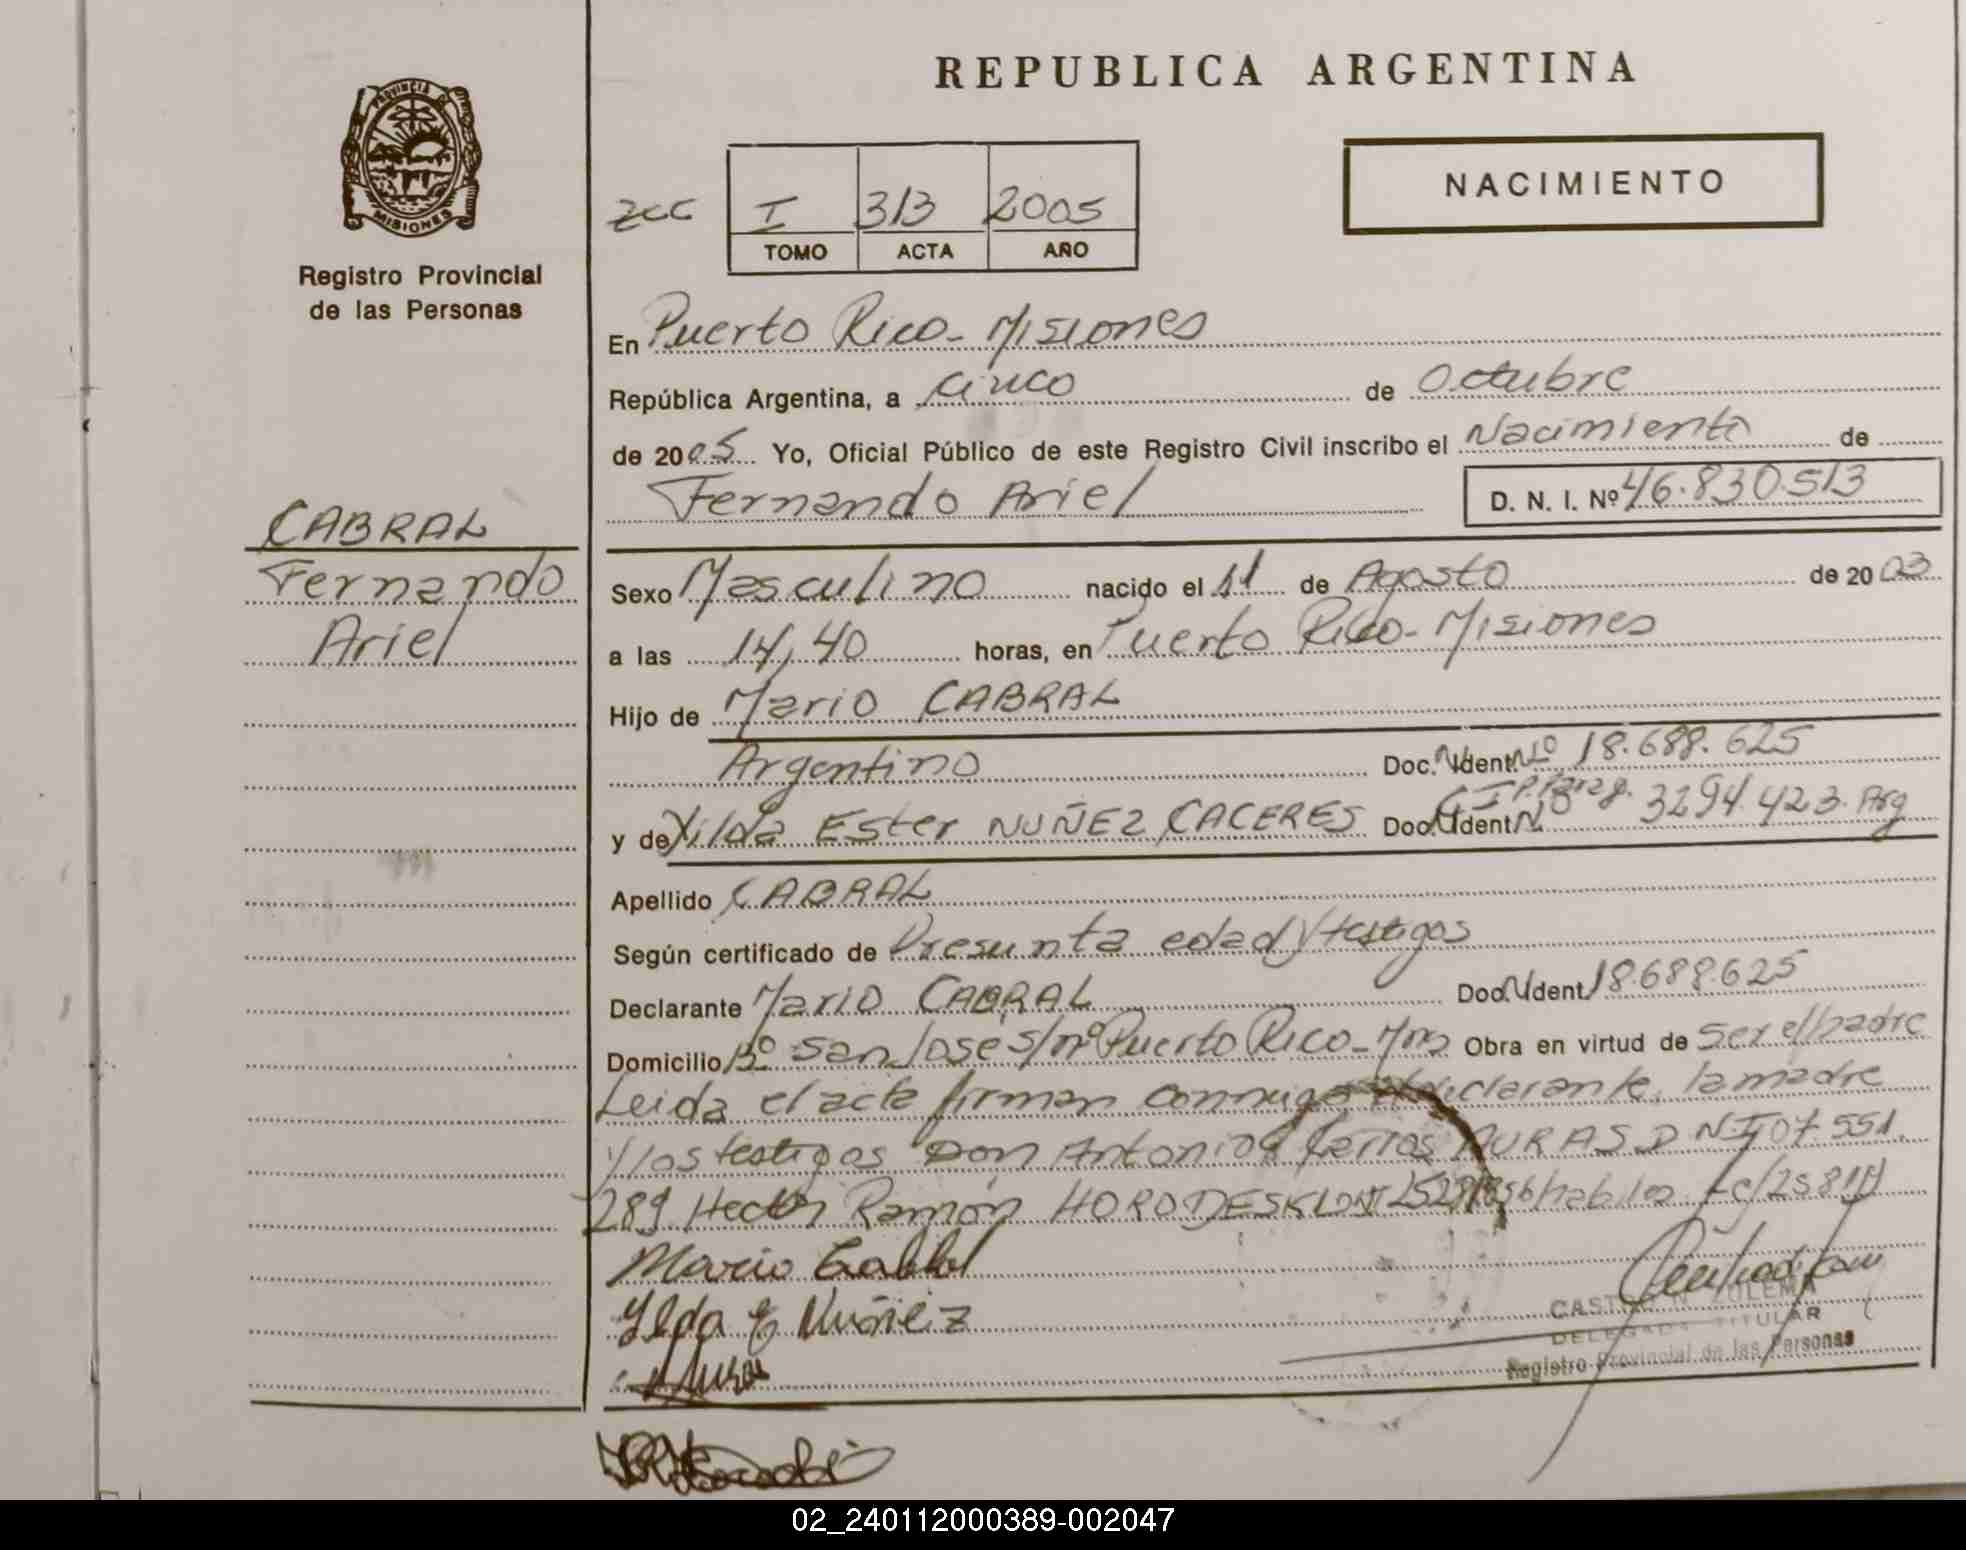 REPUBLICA ARGENTINA
PROVINCIA DE
MISIONES
Registro Provincial
de las Personas
NACIMIENTO
I 313 2005
TOMO ACTA AÑO
En Puerto Rico - Misiones
República Argentina, a cinco de Octubre
de 2005 Yo, Oficial Público de este Registro Civil inscribo el Nacimiento de
Fernando Ariel D. N. I. Nº 46.830.513
CABRAL
Fernando
Ariel
Sexo Masculino nacido el 11 de Agosto de 2003
a las 14,40 horas, en Puerto Rico - Misiones
Hijo de Mario CABRAL
Argentino Doc. Ident. Nº 18.688.625
y de Ester NUÑEZ CACERES Doc. Ident. Nº 3294.423. Arg
Apellido CABRAL
Según certificado de Presunta edad y testigos
Declarante Mario CABRAL Doc. Ident. 18.688.625
Domicilio Bº San Jose s/nº Puerto Rico - Mns Obra en virtud de ser el padre
Leida el acta firman conmigo declarante, la madre
y los testigos Don Antonio AURAS DNI 07.551.
289 Hector Ramón
Mario Cabral
Ylda E Nuñez
CASTRO N. ZULEMA
DELEGADA TITULAR
Registro Provincial de las Personas
02_240112000389-002047